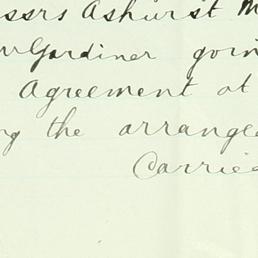 ssrs Ashurst M
Gardiner goin
Agreement at
ng the arrange
Carried